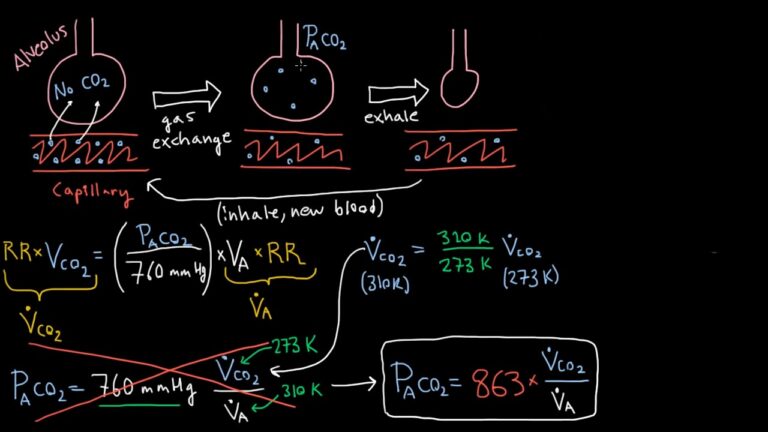 Alveolus
No CO2
gas exchange
PACO2
exhale
Capillary
(inhale, new blood)
RR × VCO2 = (PACO2 / 760 mmHg) × VA × RR
V̇CO2
V̇A
V̇CO2 (310K) = 320 K / 273 K V̇CO2 (273K)
PACO2 = 760 mmHg V̇CO2 / V̇A
273 K
310 K
PACO2 = 863 × V̇CO2 / V̇A